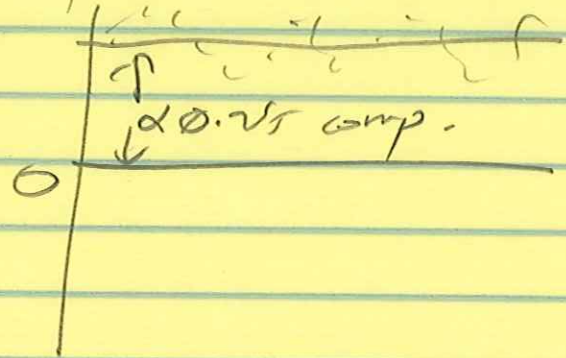 α 0.25 comp.
0